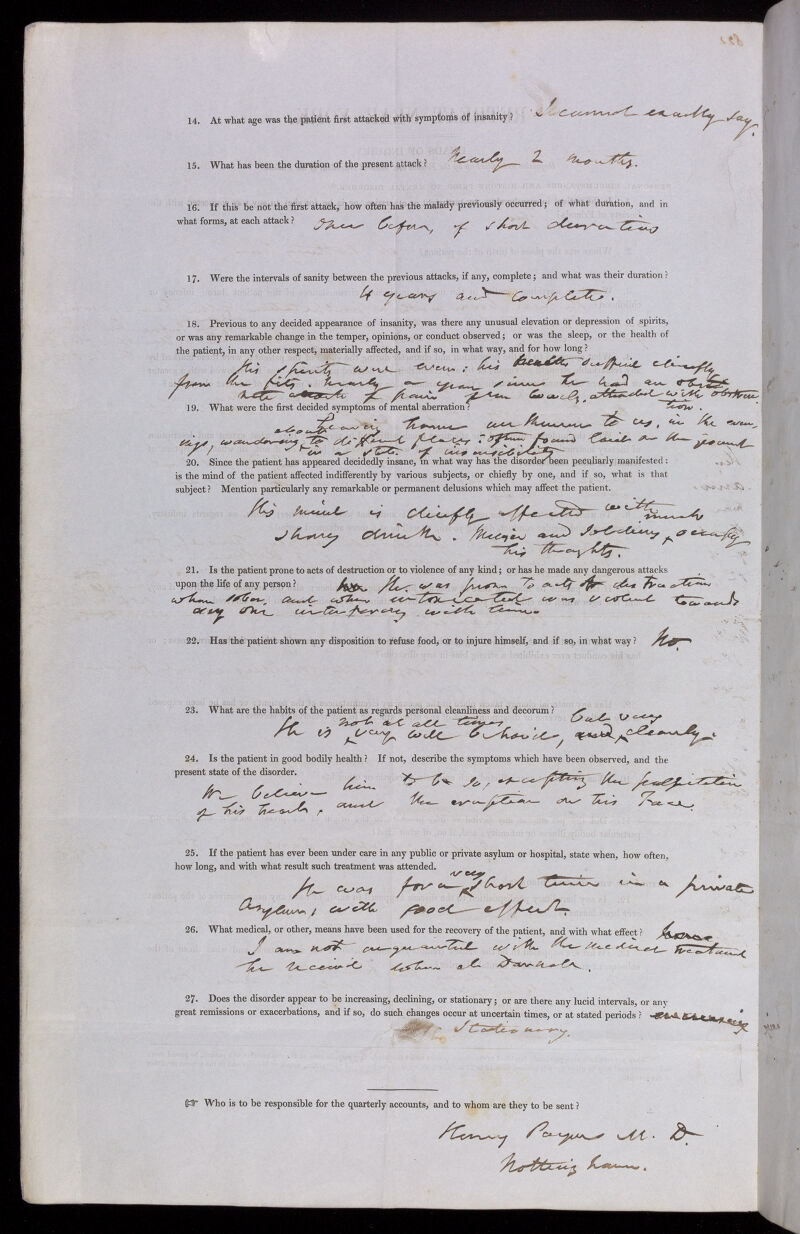 14. At what age was the patient first attacked with symptoms of insanity? I cannot exactly say.
15. What has been the duration of the present attack? Nearly 2 months.
16. If this be not the first attack, how often has the malady previously occurred; of what duration, and in
what forms, at each attack? Once before, of short duration
17. Were the intervals of sanity between the previous attacks, if any, complete; and what was their duration?
4 years and complete.
18. Previous to any decided appearance of insanity, was there any unusual elevation or depression of spirits,
or was any remarkable change in the temper, opinions, or conduct observed; or was the sleep, or the health of
the patient, in any other respect, materially affected, and if so, in what way, and for how long?
His spirits were even: his health suffered chiefly
from the fits. Nearly a year since he had an
attack of pain in bowels, attended with obstruc
tion.
19. What were the first decided symptoms of mental aberration?
leaving home unknown to us, in the even-
ings, wandering about to different places: often found laid on the ground
in a state of insensibility
20. Since the patient has appeared decidedly insane, in what way has the disorder been peculiarly manifested:
is the mind of the patient affected indifferently by various subjects, or chiefly by one, and if so, what is that
subject? Mention particularly any remarkable or permanent delusions which may affect the patient.
His mind is chiefly affected with
strong drink. Music and soldiery much occupy
his thoughts.
21. Is the patient prone to acts of destruction or to violence of any kind; or has he made any dangerous attacks
upon the life of any person? He was prone to acts of destruction
when sober, and when intoxicated was violent towards
any one interfering with him.
22. Has the patient shown any disposition to refuse food, or to injure himself, and if so, in what way? No.
23. What are the habits of the patient as regards personal cleanliness and decorum?
He is not at all times very well behaved, but very cleanly.
24. Is the patient in good bodily health? If not, describe the symptoms which have been observed, and the
present state of the disorder.
We believe him to be so, excepting the palpitation
of his heart, and the eruption on his face.
25. If the patient has ever been under care in any public or private asylum or hospital, state when, how often,
how long, and with what result such treatment was attended.
He was for a very short time in a private
Asylum; with good effect.
26. What medical, or other, means have been used for the recovery of the patient, and with what effect?
I am not acquainted with the medical treatment
he received when at
27. Does the disorder appear to be increasing, declining, or stationary; or are there any lucid intervals, or any
great remissions or exacerbations, and if so, do such changes occur at uncertain times, or at stated periods? increasing
Stationary.
☞ Who is to be responsible for the quarterly accounts, and to whom are they to be sent?
Henry M. D.
Nottingham.